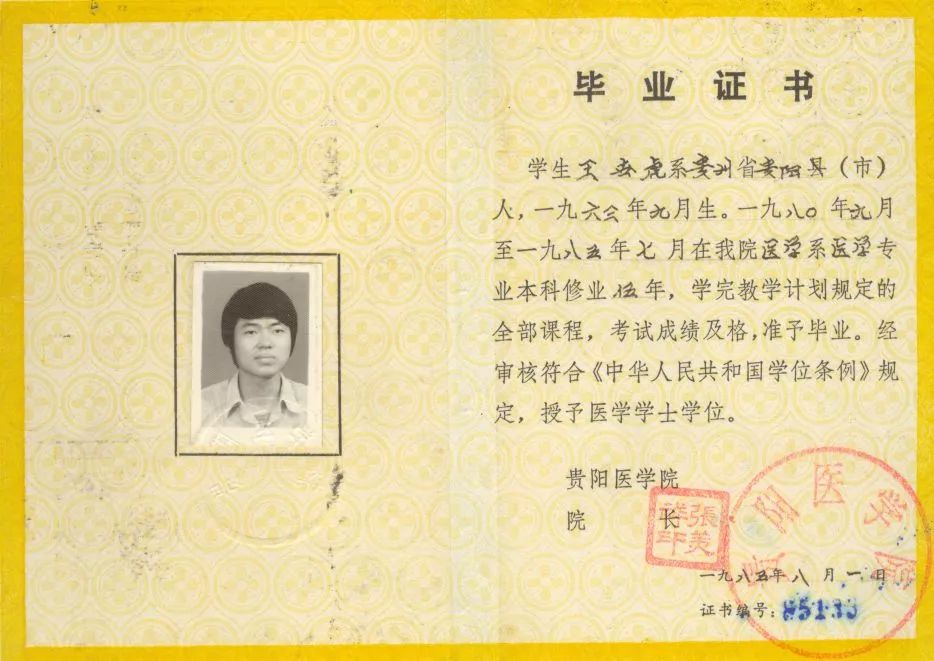 毕业证书
学生王世虎系贵州省贵阳县（市）
人，一九六三年九月生。一九八〇年九月
至一九八五年七月在我院医学系医学专
业本科修业伍年，学完教学计划规定的
全部课程，考试成绩及格，准予毕业。经
审核符合《中华人民共和国学位条例》规
定，授予医学学士学位。
贵阳医学院
院长
張美祥印
贵阳医学院
一九八五年八月一日
证书编号：85133